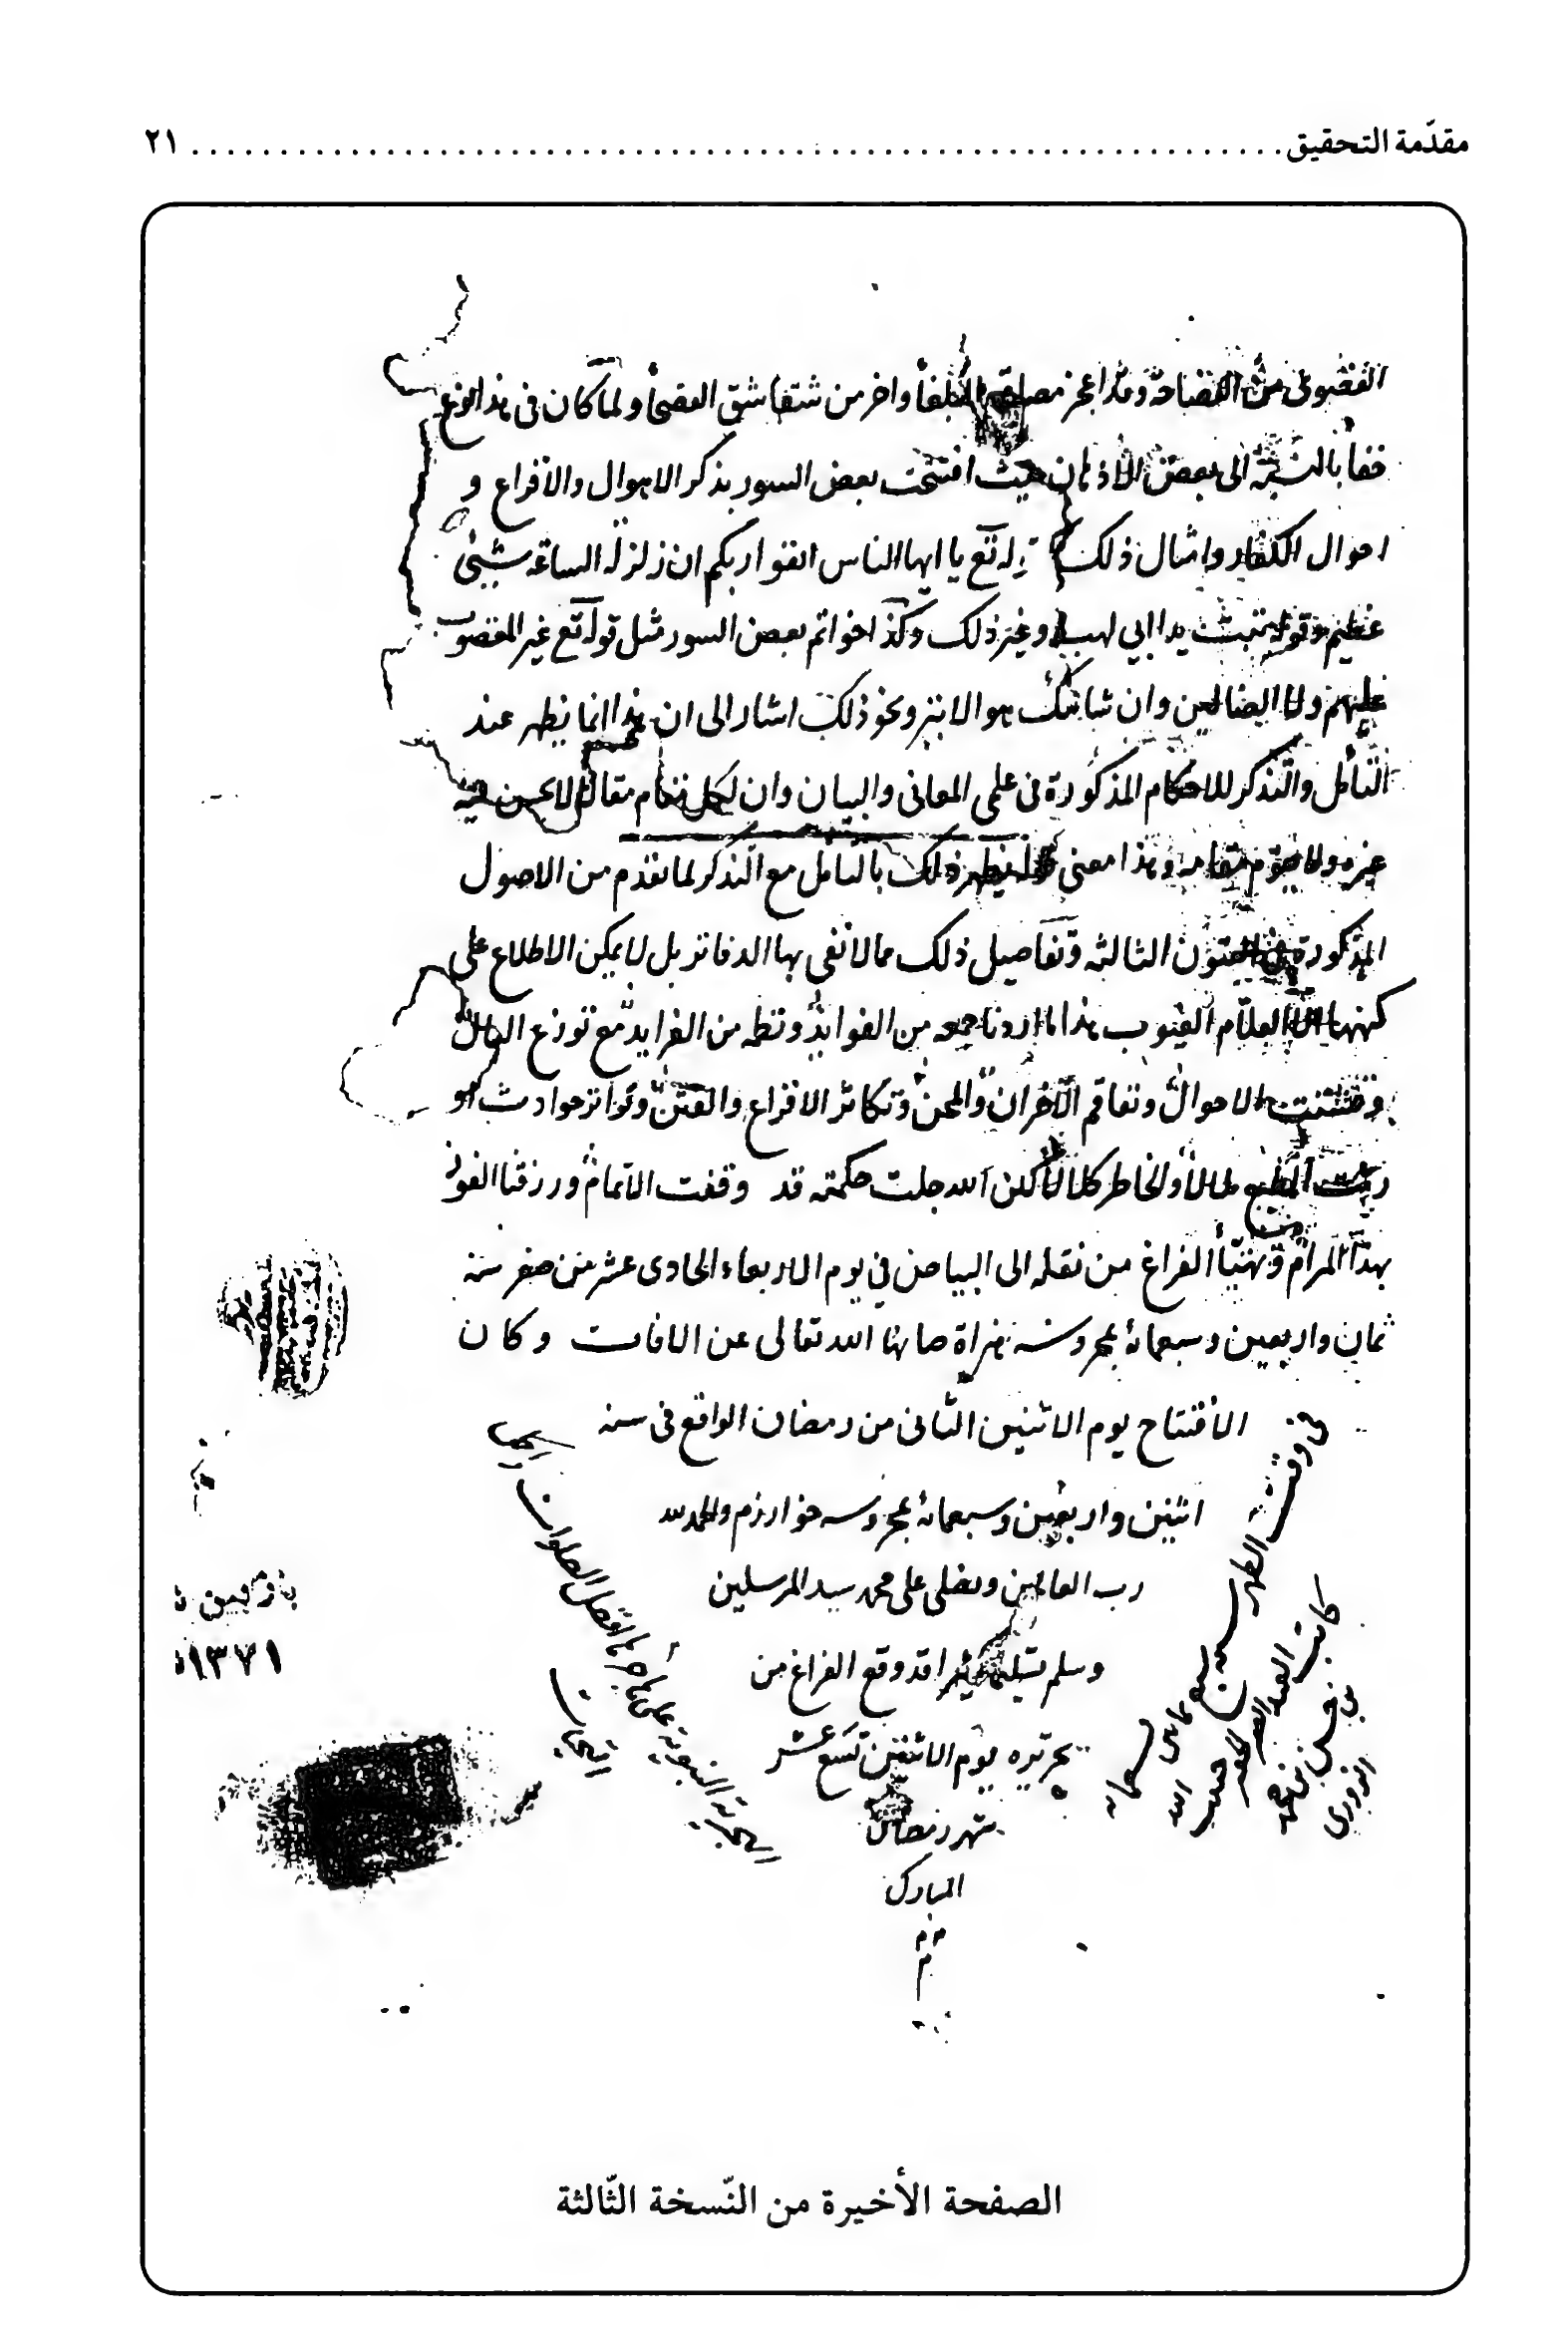 مقدّمة التحقيق ........ ٢١
القصوى من الفصاحة وقد اعجز مصاقع البلغاء واخرس شقاشق الفصحاء ولما كان في هذا نوع
خفاء بالنسبة الى بعض الاذهان حيث افتتحت بعض السور بذكر الاهوال والافزاع و
احوال الكفار وامثال ذلك تع يا ايها الناس اتقوا ربكم ان زلزلة الساعة شيئ
عظيم وقوله تبت يدا ابي لهب وغير ذلك وكذا خواتم بعض السور مثل قوله تع غير المغضوب
عليهم ولا الضالين وان شانئك هو الابتر ونحو ذلك اشار الى ان هذا انما يظهر عند
التأمل والتذكر للاحكام المذكورة في علمي المعاني والبيان وان لكل مقام مقالا لا يحسن فيه
غيره ولا يقوم مقامه وهذا معنى يظهر ذلك بالتامل مع التذكر لما تقدم من الاصول
المذكورة في الفنون الثالثه وتفاصيل ذلك مما لا تفى بها الدفاتر بل لا يمكن الاطلاع على
كنهها الا لعلام الغيوب هذا ما اردنا جمعه من الفوايد ونظمه من الفرايد مع توزع البال
وتشتت الاحوال وتفاقم الاحزان والمحن وتكاثر الافزاع والفتن وتواتر حوادث او
رثت الطبع ملالا والخاطر كلالا لكن الله جلت حكمته قد وقفت الاتمام ورزقنا الفوز
بهذا المرام وتهيأ الفراغ من نقله الى البياض في يوم الاربعاء الحادى عشر من صفر سنه
ثمان واربعين وسبعمائة بمحروسه هراة صانها الله تعالى عن الافات وكان
الافتتاح يوم الاثنين الثانى من رمضان الواقع فى سنه
اثنين واربعين وسبعمائة بمحروسه خوارزم والحمد لله
رب العالمين ونصلى على محمد سيد المرسلين
وسلم تسليما كثيرا قد وقع الفراغ من
تحريره يوم الاثنين تسع عشر
شهر رمضان
المبارك
م م
م
فى وقت الظهر
كاتب العبد
الله
الهجرية النبوية على هاجرها افضل الصلوات
التحيات
١٣٧١
الصفحة الأخيرة من النّسخة الثّالثة